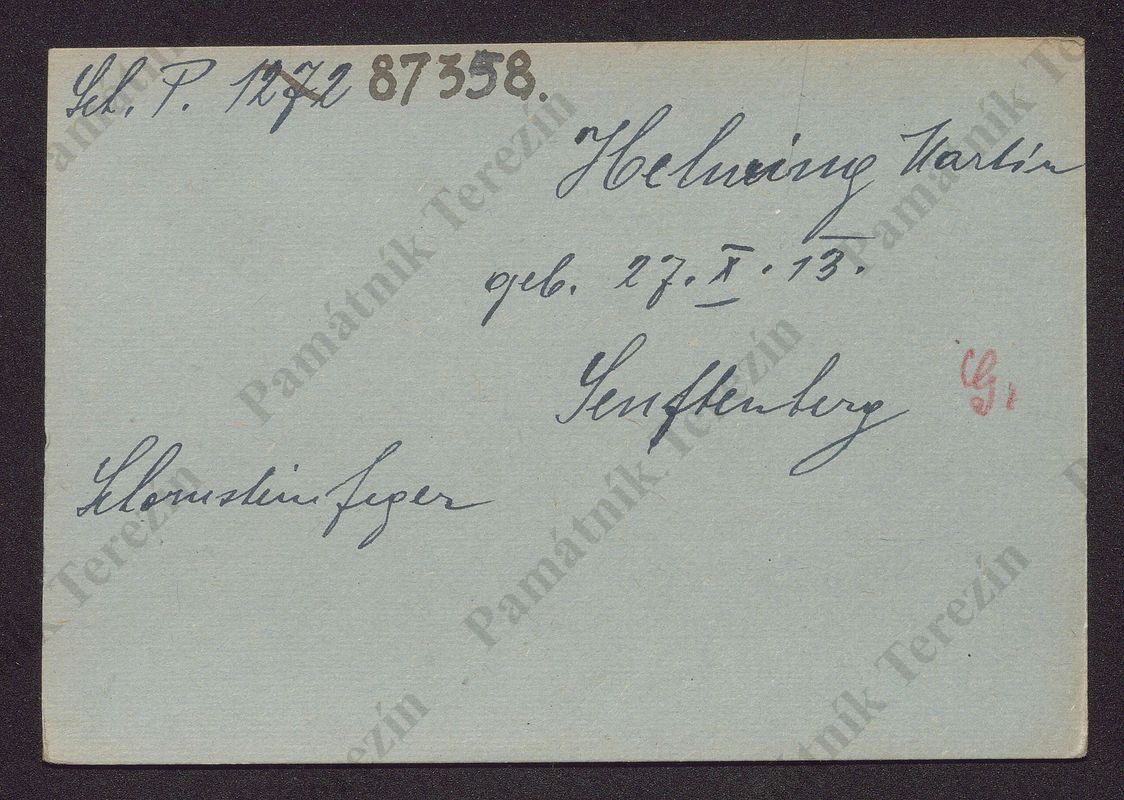 Sch. P. 1272 87358.
Helwing Martin
geb. 27. X. 13.
Senftenberg
G.
Schornsteinfeger
Památník Terezín
Památník Terezín
Památník Terezín
Památník Terezín
Památník Terezín